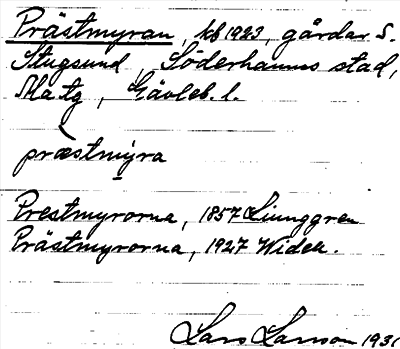 Prästmyran, kb 1923, gårdar S.
Stugsund, Söderhamns stad,
Matg, Gävleb. l.
præstmyra
Prestmyrorna, 1857 Ljunggren
Prästmyrorna, 1927 Widell.
Lars Larsson 1931